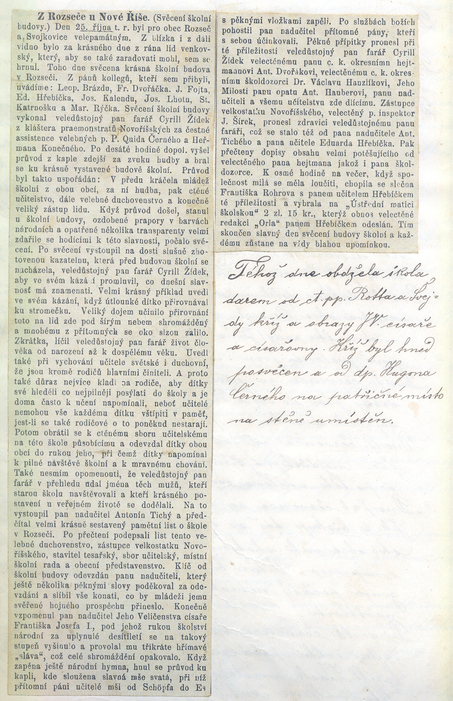 Z Rozseče u Nové Říše. (Svěcení školní
budovy.) Den 25. října t. r. byl pro obec Rozseč
a Svojkovice velepamátným. Z blízka i z dáli
vidno bylo za krásného dne z rána lid venkov-
ský, který, aby se také zaradovati mohl, sem se
hrnul. Toho dne svěcena krásná školní budova
v Rozseči. Z pánů kollegů, kteří sem přibyli,
uvádíme: Leop. Brázdu, Fr. Dvořáčka, J. Fojta,
Ed. Hřebíčka, Jos. Kalendu, Jos. Lhotu, St.
Katrnošku a Mar. Rýčka. Svěcení školní budovy
vykonal veledůstojný pan farář Cyrill Žídek
z kláštera praemonstrátů Novoříšských za čestné
assistence velebných p. P. Quida Černého a Heř-
mana Konečného. Po desáté hodině dopol. vyšel
průvod z kaple zdejší za zvuku hudby a bral
se ku krásně vystavené budově školní. Průvod
byl takto uspořádán: V předu kráčela mládež
školní z obou obcí, za ní hudba, pak ctěné
učitelstvo, dále velebné duchovenstvo a konečně
veliký zástup lidu. Když průvod došel, stanul
u školní budovy, ozdobené prapory v barvách
národních a opatřené několika transparenty velmi
zdařile se hodícími k této slavnosti, počalo svě-
cení. Po svěcení vystoupil na dosti slušně zho-
tovenou kazatelnu, která před budovou školní se
nacházela, veledůstojný pan farář Cyrill Žídek,
aby ve svém kázá í promluvil, co dnešní slav-
nost má znamenati. Velmi krásný příklad uvedl
ve svém kázání, když útlounké dítko přirovnával
ku stromečku. Veliký dojem učinilo přirovnání
toto na lid zde pod širým nebem shromážděný
a mnohému z přítomných se oko slzou zalilo.
Zkrátka, líčil veledůstojný pan farář život člo-
věka od narození až k dospělému věku. Uvedl
také při vychování učitele světské i duchovní,
že jsou kromě rodičů hlavními činiteli. A proto
také důraz nejvíce kladl na rodiče, aby dítky
své hleděli co nejpilněji posýlati do školy a je
doma často k učení napomínali, neboť učitelé
nemohou vše každému dítku vštípiti v paměť,
jest-li se také rodičové o to poněkud nestarají.
Potom obrátil se k ctěnému sboru učitelskému
na této škole působícímu a odevzdal dítky obou
obcí do rukou jeho, při čemž dítky napomínal
k pilné návštěvě školní a k mravnému chování.
Také nesmím opomenouti, že veledůstojný pan
farář v přehledu udal jména těch mužů, kteří
starou školu navštěvovali a kteří krásného po-
stavení u veřejném životě se dodělali. Na to
vystoupil pan nadučitel Antonín Tichý a před-
čítal velmi krásně sestavený pamětní list o škole
v Rozseči. Po přečtení podepsali list tento ve-
lebné duchovenstvo, zástupce velkostatku Novo-
říšského, stavitel tesařský, sbor učitelský, místní
školní rada a obecní představenstvo. Klíč od
školní budovy odevzdán panu nadučiteli, který
ještě několika pěknými slovy poděkoval za ode-
vzdání a slíbil vše konati, co by mládeži jemu
svěřené hojného prospěchu přineslo. Konečně
vzpomenul pan nadučitel Jeho Veličenstva císaře
Františka Josefa I., pod jehož rukou školství
národní za uplynulé desítiletí se na takový
stupeň vyšinulo a provolal mu třikráte hřímavé
„sláva“, což celé shromáždění opakovalo. Když
zapěna ještě národní hymna, hnul se průvod ku
kapli, kde sloužena slavná mše svatá, při níž
přítomní páni učitelé mši od Schöpfa do Es
s pěknými vložkami zapěli. Po službách božích
pohostil pan nadučitel přítomné pány, kteří
s sebou účinkovali. Pěkné přípitky pronesl při
té příležitosti veledůstojný pan farář Cyrill
Žídek velectěnému panu c. k. okresnímu hejt-
manovi Ant. Dvořákovi, velectěnému c. k. okres-
nímu školdozorci Dr. Václavu Hanzlíkovi, Jeho
Milosti panu opatu Ant. Hauberovi, panu nad-
učiteli a všemu učitelstvu zde dlícímu. Zástupce
velkostatku Novoříšského, velectěný p. inspektor
J. Šírek, pronesl zdravici veledůstojnému panu
faráři, což se stalo též od pana nadučitele Ant.
Tichého a pana učitele Eduarda Hřebíčka. Pak
přečteny dopisy obsahu velmi potěšujícího od
velectěného pana hejtmana jakož i pana škol-
dozorce. K osmé hodině na večer, když spo-
lečnost milá se měla loučiti, chopila se slečna
Františka Rohrova s panem učitelem Hřebíčkem
té příležitosti a vybrala na „Ústřední matici
školskou“ 2 zl. 15 kr., kterýž obnos velectěné
redakci „Orla“ panem Hřebíčkem odeslán. Tím
skončen slavný den svěcení budovy školní a kaž-
dému zůstane na vždy blahou upomínkou.
Téhož dne obdržela škola
darem od ct. pp. Rottara a Šoej-
dy kříž a obrazy JV. císaře
a císařovny. Kříž byl hned
posvěcen a od dp. Hugona
Černého na patřičné místo
na stěně umístěn.